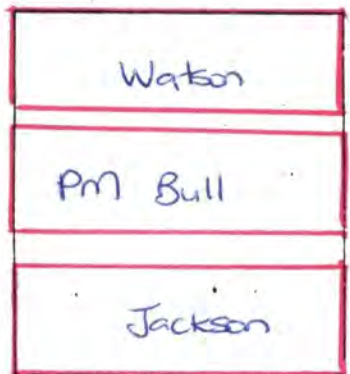 Watson
PM Bull
Jackson